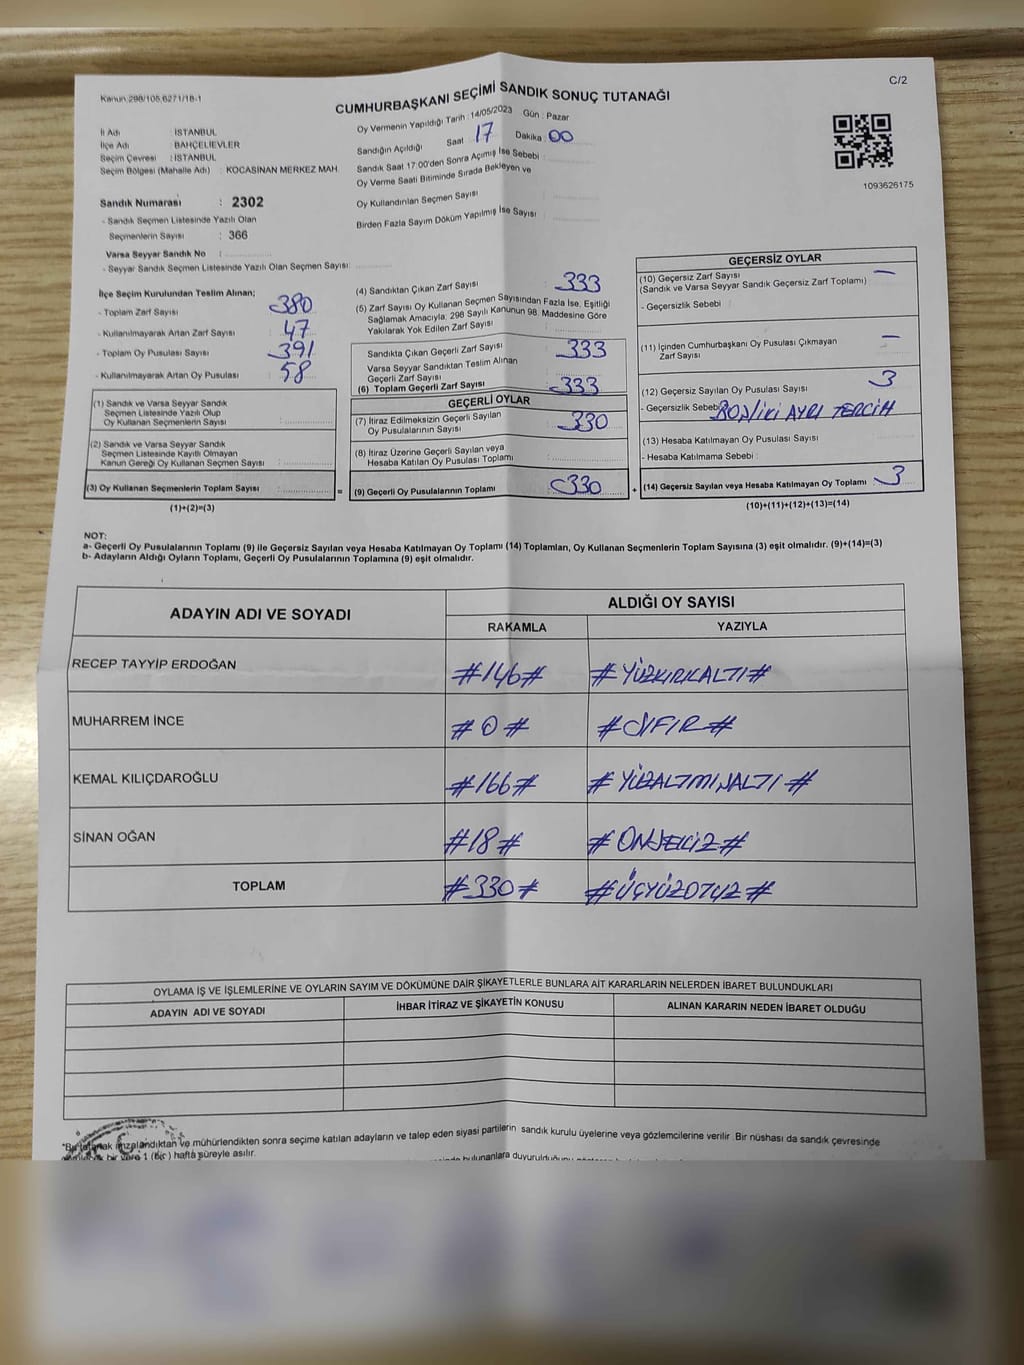 C/2
Kanun:298/105,6271/18-1
CUMHURBAŞKANI SEÇİMİ SANDIK SONUÇ TUTANAĞI
İl Adı : İSTANBUL
İlçe Adı : BAHÇELİEVLER
Seçim Çevresi : İSTANBUL
Seçim Bölgesi (Mahalle Adı) : KOCASİNAN MERKEZ MAH.
Oy Vermenin Yapıldığı Tarih : 14/05/2023 Gün : Pazar
Sandığın Açıldığı Saat 17 Dakika : 00
Sandık Saat 17:00'den Sonra Açımış İse Sebebi
Oy Verme Saati Bitiminde Sırada Bekleyen ve
Oy Kullandırılan Seçmen Sayısı
Birden Fazla Sayım Döküm Yapılmış İse Sayısı
1093626175
Sandık Numarası : 2302
- Sandık Seçmen Listesinde Yazılı Olan
Seçmenlerin Sayısı : 366
Varsa Seyyar Sandık No :
- Seyyar Sandık Seçmen Listesinde Yazılı Olan Seçmen Sayısı:
İlçe Seçim Kurulundan Teslim Alınan;
- Toplam Zarf Sayısı : 380
- Kullanılmayarak Artan Zarf Sayısı : 47
- Toplam Oy Pusulası Sayısı : 391
- Kullanılmayarak Artan Oy Pusulası : 58
(1) Sandık ve Varsa Seyyar Sandık
Seçmen Listesinde Yazılı Olup
Oy Kullanan Seçmenlerin Sayısı :
(2) Sandık ve Varsa Seyyar Sandık
Seçmen Listesinde Kayıtlı Olmayan
Kanun Gereği Oy Kullanan Seçmen Sayısı :
(3) Oy Kullanan Seçmenlerin Toplam Sayısı : =
(1)+(2)=(3)
(4) Sandıktan Çıkan Zarf Sayısı : 333
(5) Zarf Sayısı Oy Kullanan Seçmen Sayısından Fazla İse, Eşitliği
Sağlamak Amacıyla; 298 Sayılı Kanunun 98. Maddesine Göre
Yakılarak Yok Edilen Zarf Sayısı :
Sandıkta Çıkan Geçerli Zarf Sayısı : 333
Varsa Seyyar Sandıktan Teslim Alınan
Geçerli Zarf Sayısı :
(6) Toplam Geçerli Zarf Sayısı : 333
GEÇERLİ OYLAR
(7) İtiraz Edilmeksizin Geçerli Sayılan
Oy Pusulalarının Sayısı : 330
(8) İtiraz Üzerine Geçerli Sayılan veya
Hesaba Katılan Oy Pusulası Toplamı :
(9) Geçerli Oy Pusulalarının Toplamı : 330 +
GEÇERSİZ OYLAR
(10) Geçersiz Zarf Sayısı : —
(Sandık ve Varsa Seyyar Sandık Geçersiz Zarf Toplamı)
- Geçersizlik Sebebi :
(11) İçinden Cumhurbaşkanı Oy Pusulası Çıkmayan : —
Zarf Sayısı
(12) Geçersiz Sayılan Oy Pusulası Sayısı : 3
- Geçersizlik Sebebi İKİ AYRI TERCİH
(13) Hesaba Katılmayan Oy Pusulası Sayısı :
- Hesaba Katılmama Sebebi :
(14) Geçersiz Sayılan veya Hesaba Katılmayan Oy Toplamı : 3
(10)+(11)+(12)+(13)=(14)
NOT:
a- Geçerli Oy Pusulalarının Toplamı (9) ile Geçersiz Sayılan veya Hesaba Katılmayan Oy Toplamı (14) Toplamları, Oy Kullanan Seçmenlerin Toplam Sayısına (3) eşit olmalıdır. (9)+(14)=(3)
b- Adayların Aldığı Oyların Toplamı, Geçerli Oy Pusulalarının Toplamına (9) eşit olmalıdır.
ADAYIN ADI VE SOYADI ALDIĞI OY SAYISI
RAKAMLA YAZIYLA
RECEP TAYYİP ERDOĞAN #146# #YÜZKIRKALTI#
MUHARREM İNCE #0# #SIFIR#
KEMAL KILIÇDAROĞLU #166# #YÜZALTMIŞALTI#
SİNAN OĞAN #18# #ONSEKİZ#
TOPLAM #330# #ÜÇYÜZOTUZ#
OYLAMA İŞ VE İŞLEMLERİNE VE OYLARIN SAYIM VE DÖKÜMÜNE DAİR ŞİKAYETLERLE BUNLARA AİT KARARLARIN NELERDEN İBARET BULUNDUKLARI
ADAYIN ADI VE SOYADI İHBAR İTİRAZ VE ŞİKAYETİN KONUSU ALINAN KARARIN NEDEN İBARET OLDUĞU
imzalandıktan ve mühürlendikten sonra seçime katılan adayların ve talep eden siyasi partilerin sandık kurulu üyelerine veya gözlemcilerine verilir. Bir nüshası da sandık çevresinde
bir yere 1 (bir) hafta süreyle asılır.
bulunanlara